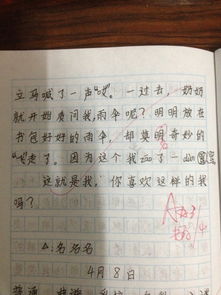 立马喊了一声"哎"。一过去，奶奶
就开始质问我，雨伞呢？明明放在
书包好好的雨伞，却莫明奇妙的
走了。因为这个我zāo了一dùn
这就是我，你喜欢这样的我
吗？
名名名
4月8日
A